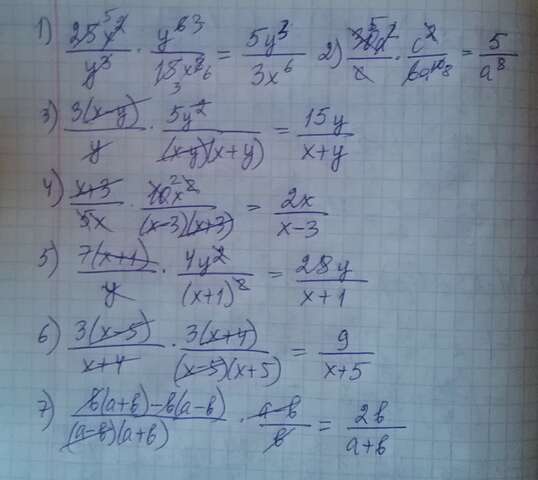 1) 25⁵x² / y³ · y⁶ ³ / 15₃ x⁸ ⁶ = 5y³ / 3x⁶ 2) 30⁵a² / c · c² / 6a¹⁰ ⁸ = 5 / a⁸
3) 3(x-y) / y · 5y² / (x-y)(x+y) = 15y / x+y
4) x+3 / 5x · 10²x² / (x-3)(x+3) = 2x / x-3
5) 7(x+1) / y · 4y² / (x+1)² = 28y / x+1
6) 3(x-5) / x+4 · 3(x+4) / (x-5)(x+5) = 9 / x+5
7) b(a+b)-b(a-b) / (a-b)(a+b) · a-b / b = 2b / a+b